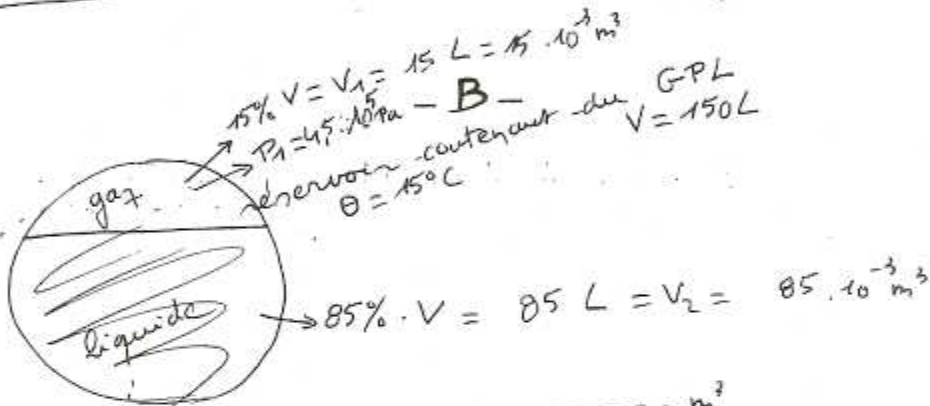 15% V = V₁ = 15 L = 15 . 10⁻³ m³
P₁ = 4,5 . 10⁵ Pa - B -
réservoir contenant du GPL
V = 150L
θ = 15°C
gaz
liquide
85% . V = 85 L = V₂ = 85 . 10⁻³ m³
m³